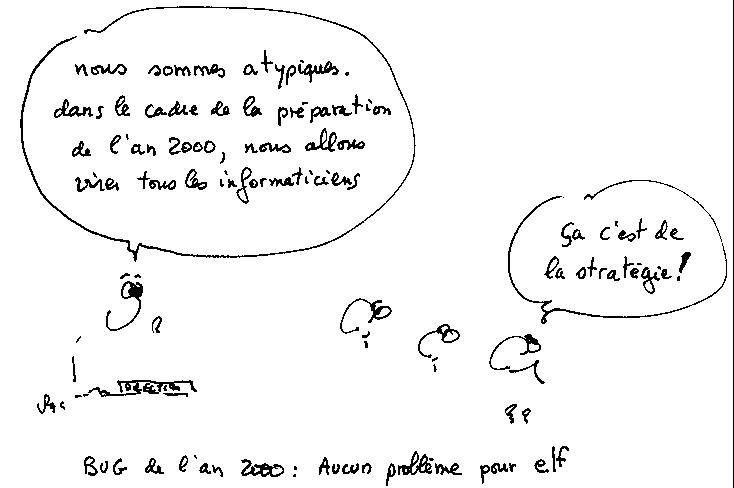 nous sommes atypiques.
dans le cadre de la préparation
de l'an 2000, nous allons
virer tous les informaticiens
ça c'est de
la stratégie!
DIRECTION
BUG de l'an 2000 : Aucun problème pour elf